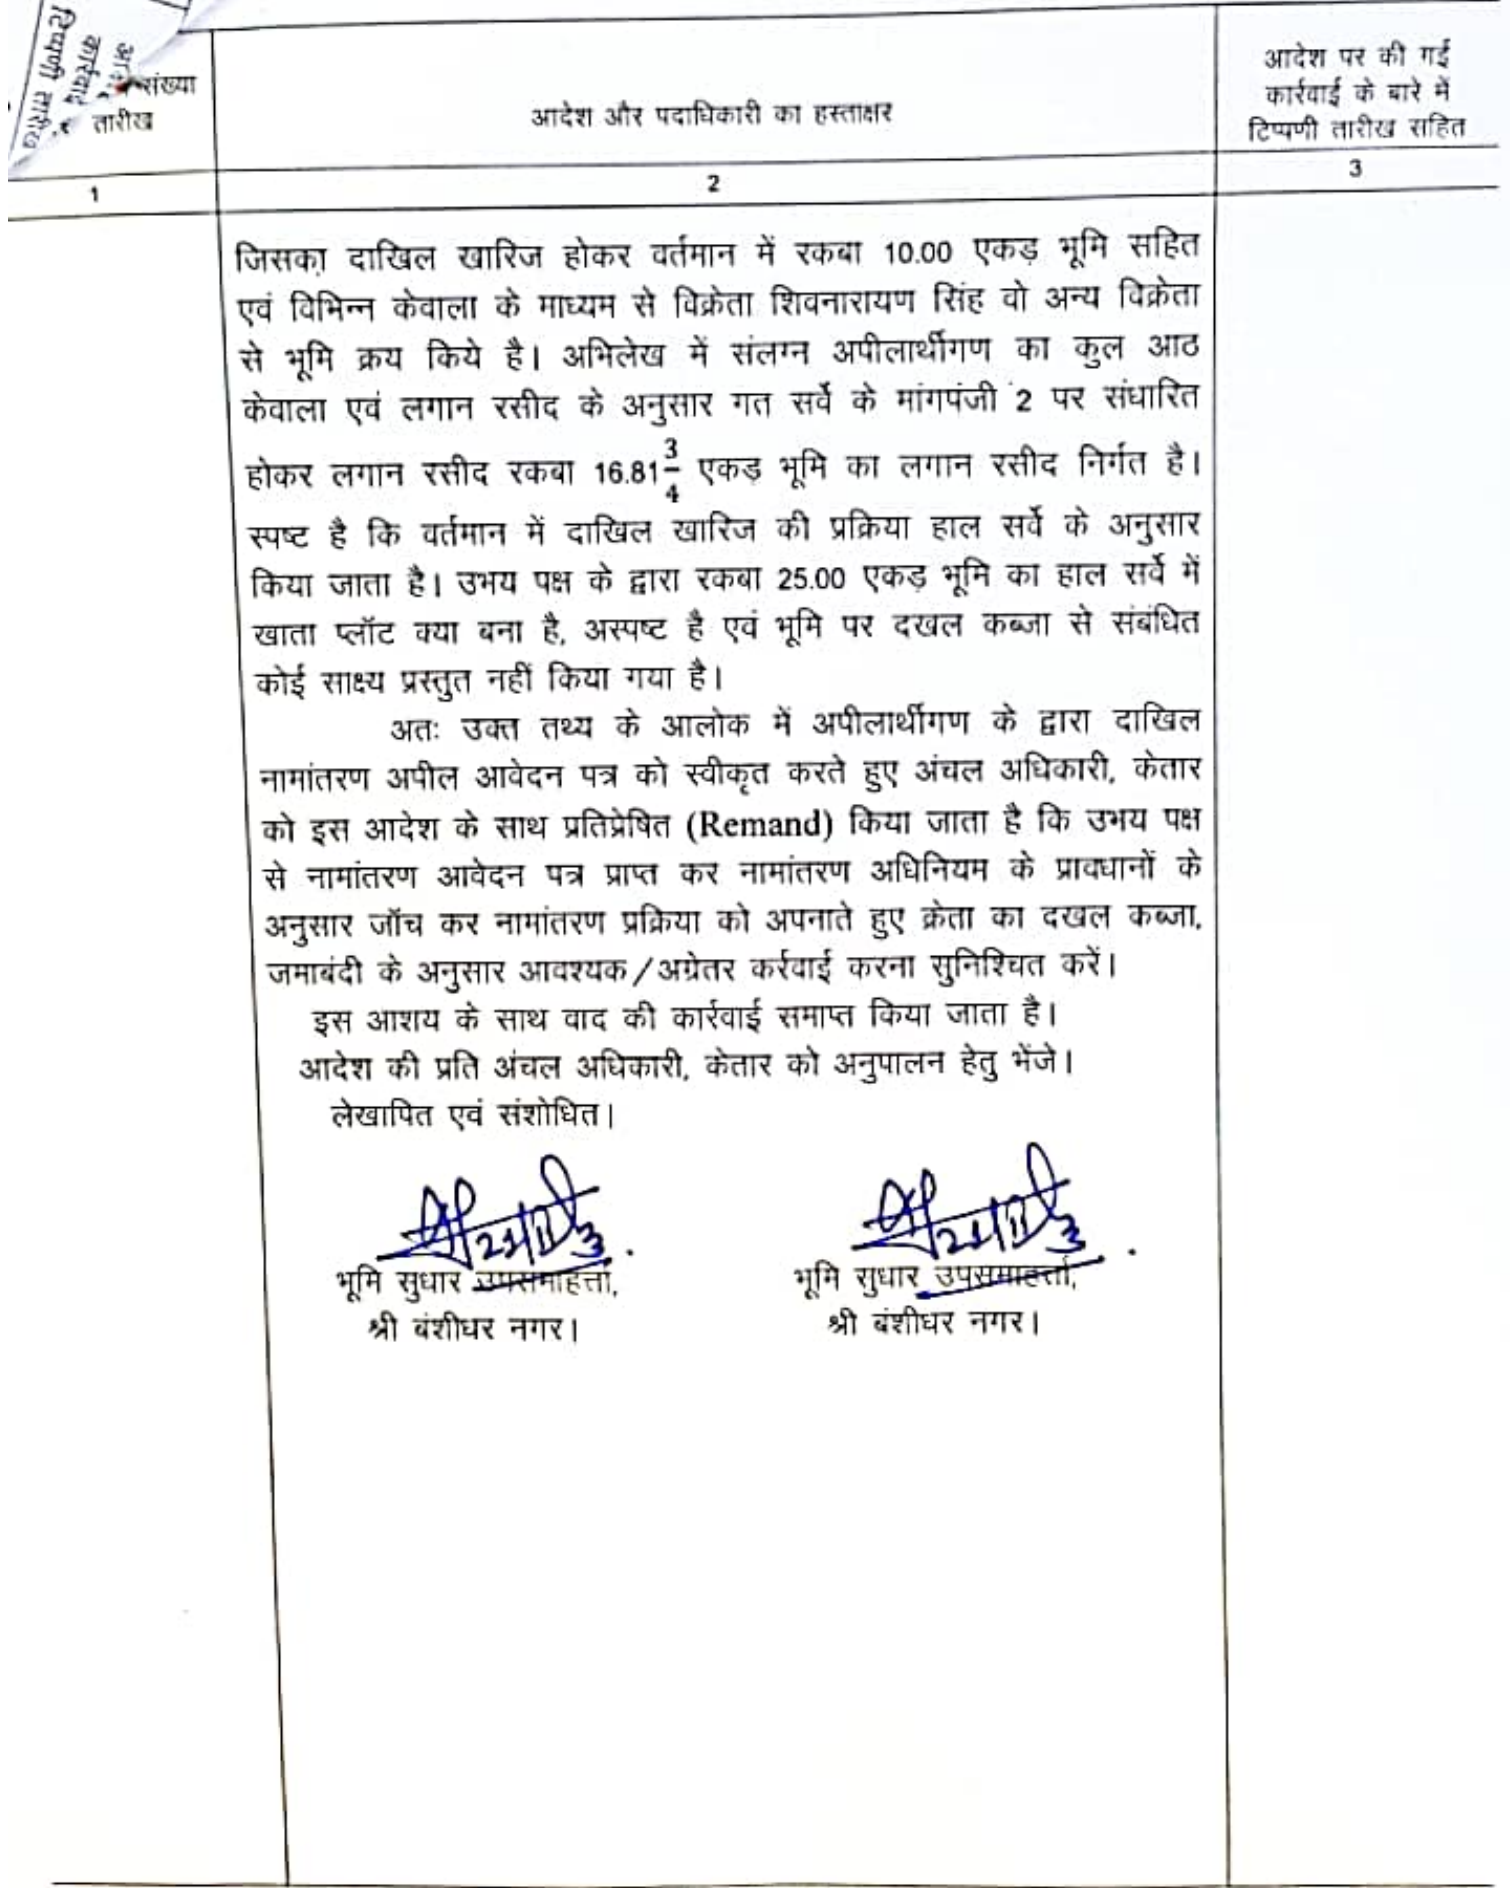 टिप्पणी तारीख
कार्रवाई
संख्या
तारीख
आदेश और पदाधिकारी का हस्ताक्षर
आदेश पर की गई
कार्रवाई के बारे में
टिप्पणी तारीख सहित
1
2
3
जिसका दाखिल खारिज होकर वर्तमान में रकबा 10.00 एकड़ भूमि सहित
एवं विभिन्न केवाला के माध्यम से विक्रेता शिवनारायण सिंह वो अन्य विक्रेता
से भूमि क्रय किये है। अभिलेख में संलग्न अपीलार्थीगण का कुल आठ
केवाला एवं लगान रसीद के अनुसार गत सर्वे के मांगपंजी 2 पर संधारित
होकर लगान रसीद रकबा 16.81 3/4 एकड़ भूमि का लगान रसीद निर्गत है।
स्पष्ट है कि वर्तमान में दाखिल खारिज की प्रक्रिया हाल सर्वे के अनुसार
किया जाता है। उभय पक्ष के द्वारा रकबा 25.00 एकड़ भूमि का हाल सर्वे में
खाता प्लॉट क्या बना है, अस्पष्ट है एवं भूमि पर दखल कब्जा से संबंधित
कोई साक्ष्य प्रस्तुत नहीं किया गया है।
अतः उक्त तथ्य के आलोक में अपीलार्थीगण के द्वारा दाखिल
नामांतरण अपील आवेदन पत्र को स्वीकृत करते हुए अंचल अधिकारी, केतार
को इस आदेश के साथ प्रतिप्रेषित (Remand) किया जाता है कि उभय पक्ष
से नामांतरण आवेदन पत्र प्राप्त कर नामांतरण अधिनियम के प्रावधानों के
अनुसार जॉच कर नामांतरण प्रक्रिया को अपनाते हुए क्रेता का दखल कब्जा,
जमाबंदी के अनुसार आवश्यक/अग्रेतर कर्रवाई करना सुनिश्चित करें।
इस आशय के साथ वाद की कार्रवाई समाप्त किया जाता है।
आदेश की प्रति अंचल अधिकारी, केतार को अनुपालन हेतु भेंजे।
लेखापित एवं संशोधित।
भूमि सुधार उपसमाहर्त्ता,
श्री बंशीधर नगर।
भूमि सुधार उपसमाहर्त्ता,
श्री बंशीधर नगर।